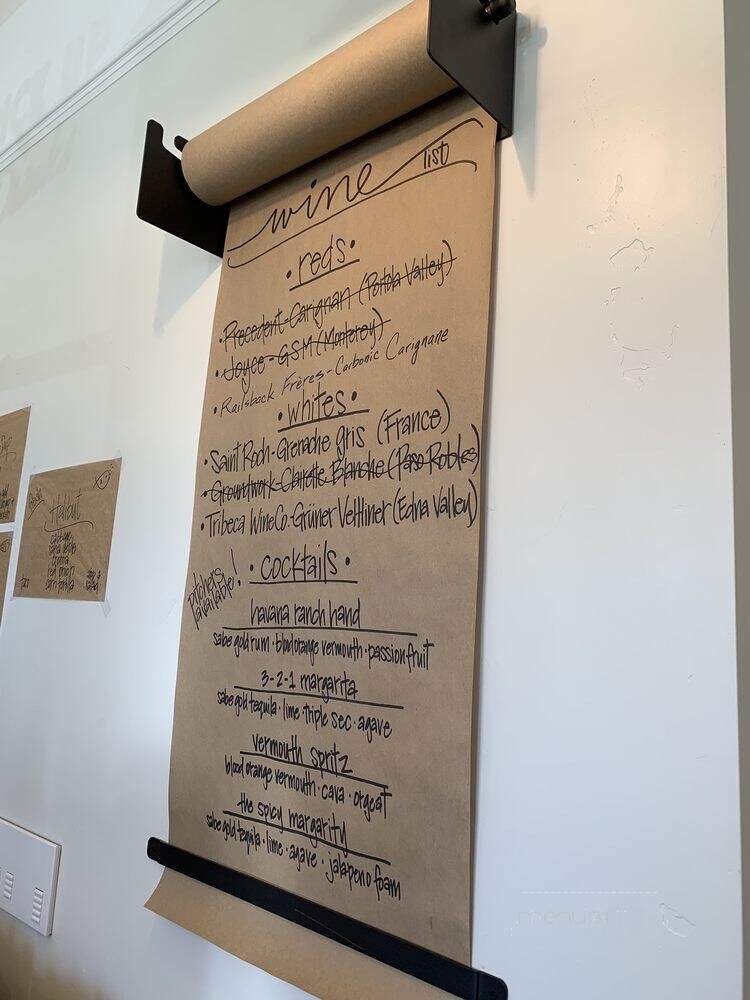 wine list
• reds •
• Precedent-Carignan (Portola Valley)
• Joyce - GSM (Monterey)
• Railsback Frères - Carbonic Carignane
• whites •
• Saint Roch-Grenache gris (France)
• Groundwork-Clairette Blanche (Paso Robles)
• Tribeca Wine Co.-Grüner Veltliner (Edna Valley)
pitchers available!
• cocktails •
havana ranch hand
sabe gold rum • blood orange vermouth • passionfruit
3-2-1 margarita
sabe gold tequila • lime • triple sec • agave
vermouth spritz
blood orange vermouth • cava • orgeat
the spicy margarity
sabe gold tequila • lime • agave • jalapeno foam
Halibut